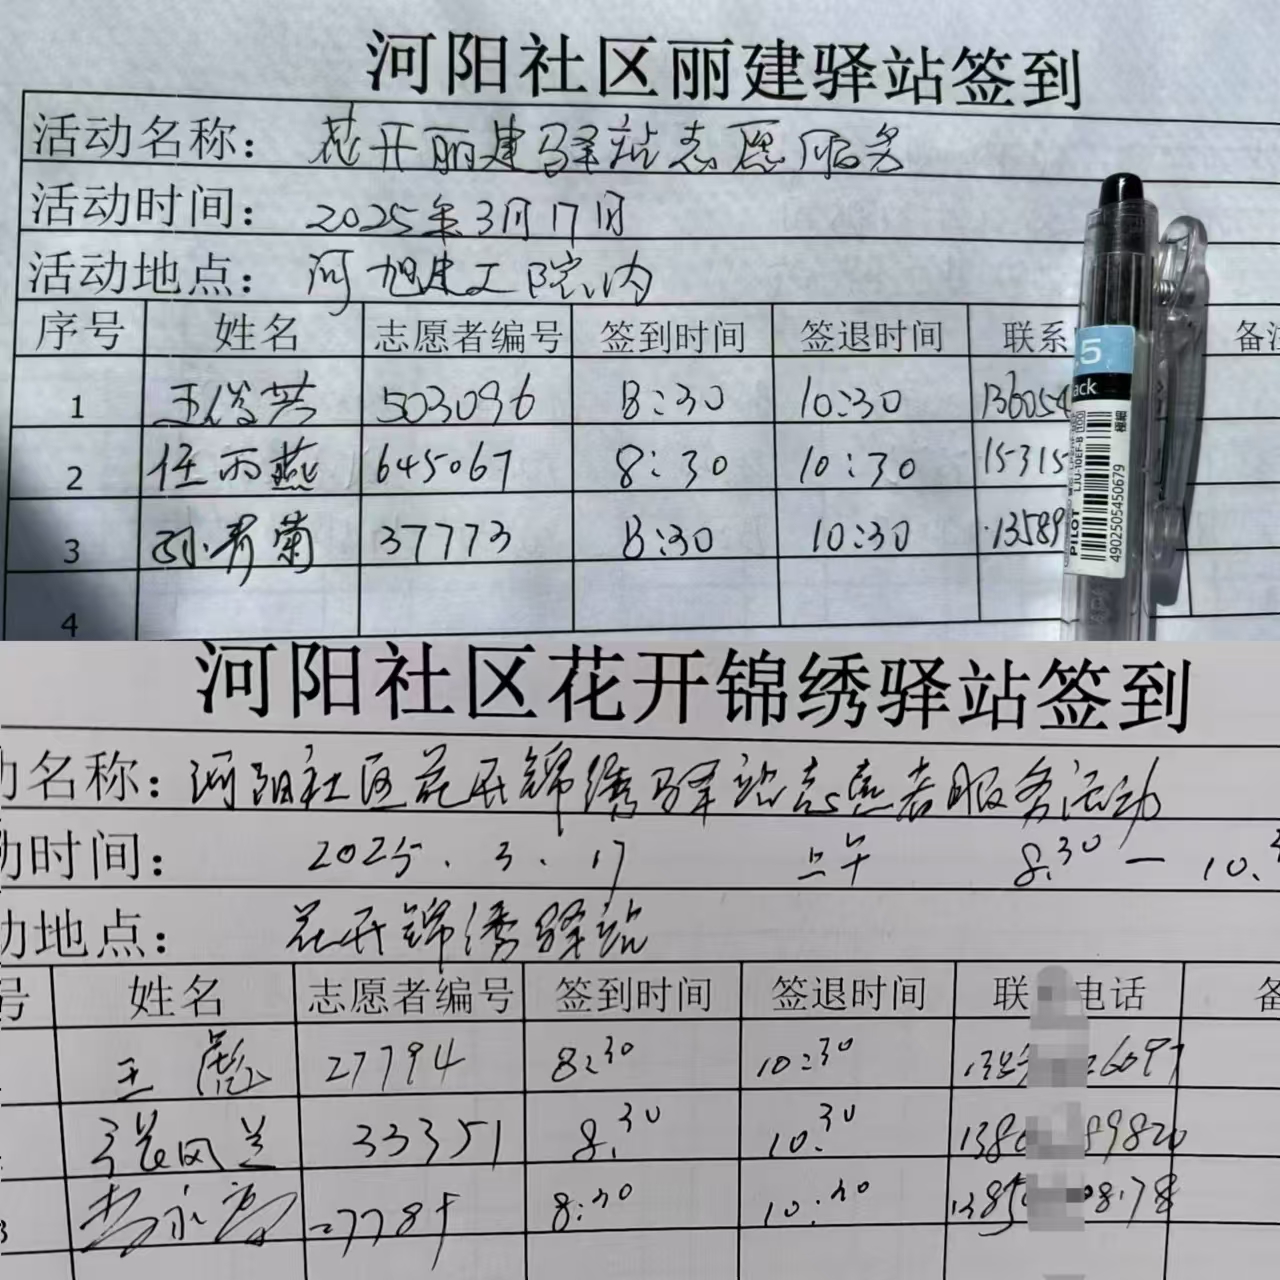 河阳社区丽建驿站签到
活动名称：花开丽建驿站志愿服务
活动时间：2025年3月17日
活动地点：河旭建工院内
序号 姓名 志愿者编号 签到时间 签退时间 联系 备注
1 王俊芸 503096 8:30 10:30 136054
2 任丙燕 645067 8:30 10:30 15315
3 孙青菊 37773 8:30 10:30 13589
4
.5
ack
PILOT
LJU-10EF-B
4902505450679
河阳社区花开锦绣驿站签到
动名称：河阳社区花开锦绣驿站志愿者服务活动
动时间：2025.3.17 上午 8:30—10:3
动地点：花开锦绣驿站
号 姓名 志愿者编号 签到时间 签退时间 联 电话 备
王彪 27794 8:30 10:30 6097
张风兰 33351 8:30 10:30 138 89820
3 永 27785 8:30 10:30 1385 08178